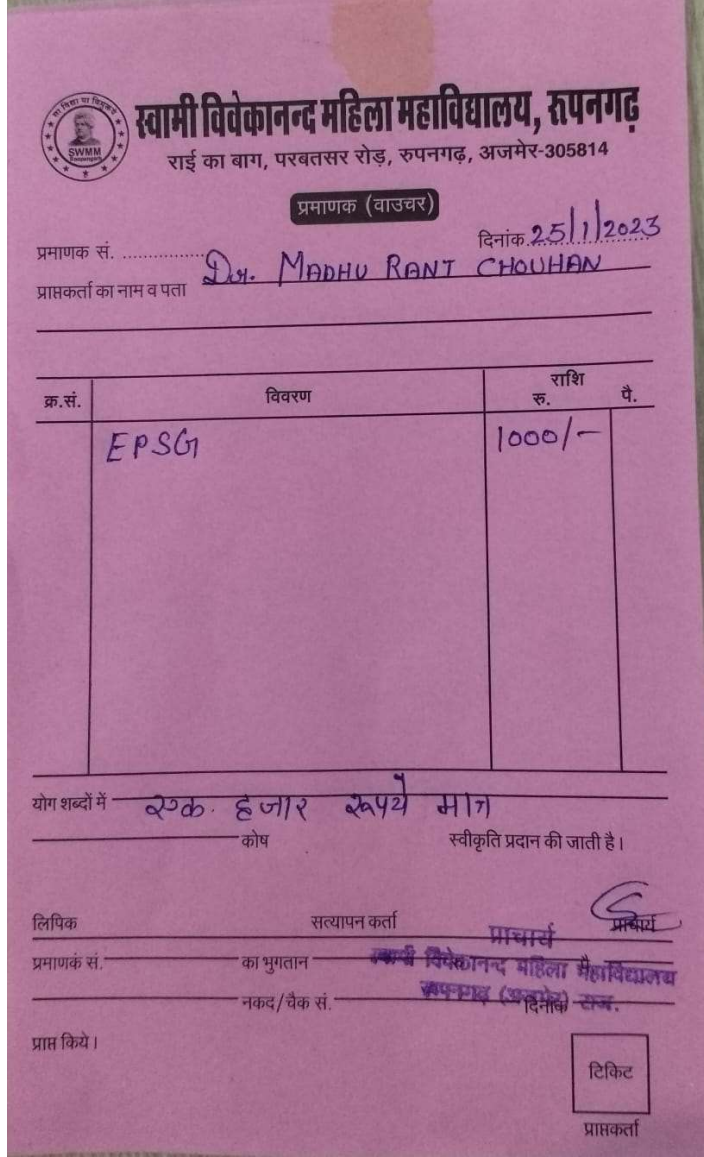 सा विद्या या विमुक्तये
SWMM
स्वामी विवेकानन्द महिला महाविद्यालय, रूपनगढ़
राई का बाग, परबतसर रोड़, रुपनगढ़, अजमेर-305814
प्रमाणक (वाउचर)
प्रमाणक सं. .................. दिनांक 25/1/2023
प्राप्तकर्ता का नाम व पता Dr. MADHU RANI CHOUHAN
क्र.सं. विवरण राशि
रु. पै.
EPSG 1000/-
योग शब्दों में एक हजार रूपये मात्र
कोष स्वीकृति प्रदान की जाती है।
लिपिक सत्यापन कर्ता प्राचार्य
प्राचार्य
प्रमाणकं सं. का भुगतान
स्वामी विवेकानन्द महिला महाविद्यालय
रूपनगढ़ (अजमेर) राज.
नकद/चैक सं. दिनांक
प्राप्त किये।
टिकिट
प्राप्तकर्ता